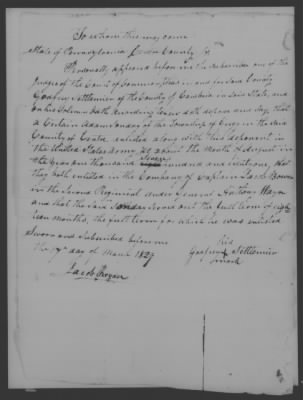 To whom this may come
State of Pennsylvania Erwin County, Ss
Personally appeared before me the subscriber one of the
Judges of the Court of Common pleas in and for said County
Godfrey Settlemier of the County of Cambria in said State, and
on his Solemn Oath According to law doth depose and say, that
a Certain Adam Sonder of the Township of Gregg in the said
County of Centre enlisted along with this deponent in
the United States Army, at about the month of August in
the year one thousand Seven hundred and ninety one, that
they both enlisted in the Company of Captain Jacob Bower
in the Second Regiment under General Anthony Wayne
and that the said Sonder served out the full term of eigh
teen months, the full term for which he was enlisted
Sworn and Subscribed before me
The 7th day of March 1829
Jacob Bogan
his
Godfrey Settlemier
mark